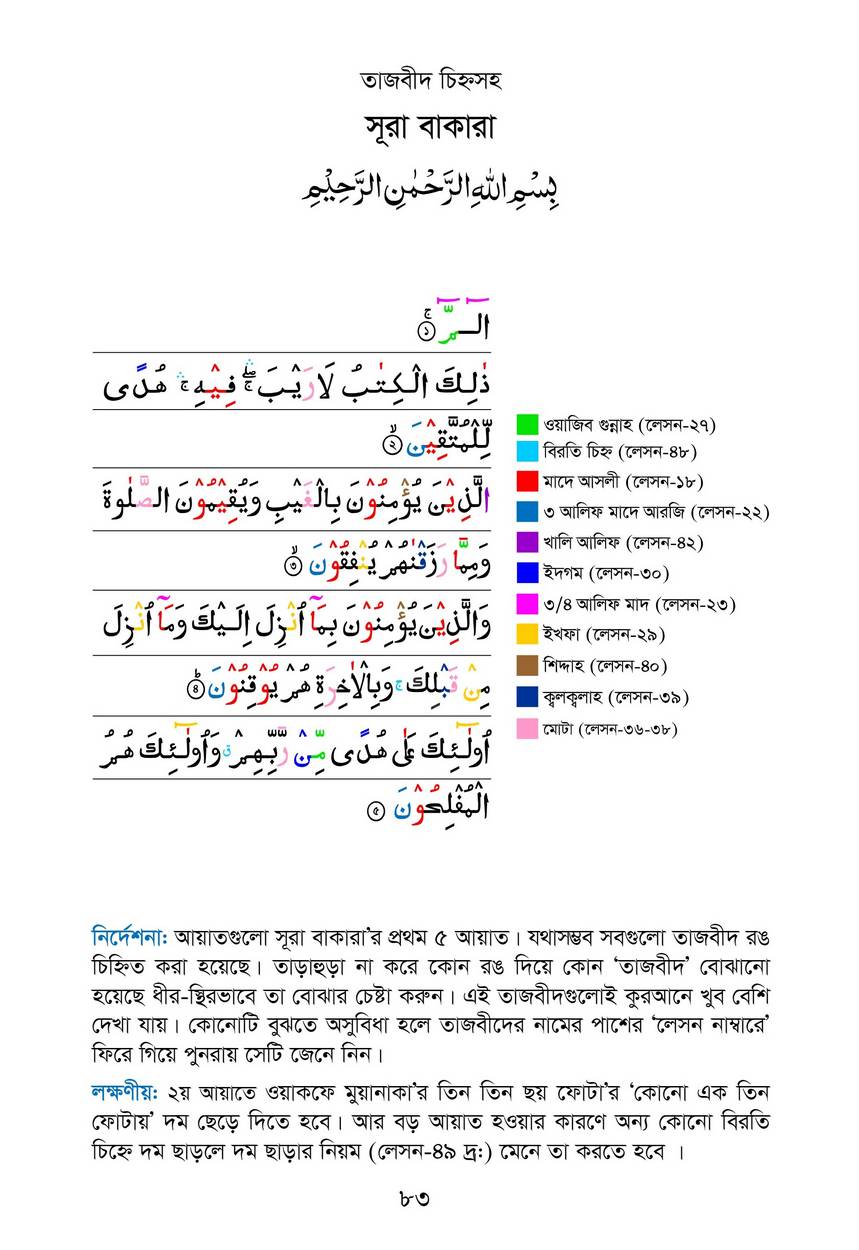 তাজবীদ চিহ্নসহ
সূরা বাকারা
بِسْمِ اللهِ الرَّحْمٰنِ الرَّحِيْمِ
الٓـمّٓ ۚ ①
ذٰلِكَ الْكِتٰبُ لَا رَيْبَ ۛۖۚ فِيْهِ ۛۚ هُدًى
لِّلْمُتَّقِيْنَ ۙ ②
الَّذِيْنَ يُؤْمِنُوْنَ بِالْغَيْبِ وَيُقِيْمُوْنَ الصَّلٰوةَ
وَمِمَّا رَزَقْنٰهُمْ يُنْفِقُوْنَ ۙ ③
وَالَّذِيْنَ يُؤْمِنُوْنَ بِمَآ اُنْزِلَ اِلَيْكَ وَمَآ اُنْزِلَ
مِنْ قَبْلِكَ ۚ وَبِالْاٰخِرَةِ هُمْ يُوْقِنُوْنَ ؕ ④
اُولٰٓئِكَ عَلٰى هُدًى مِّنْ رَّبِّهِمْ ۗ وَاُولٰٓئِكَ هُمُ
الْمُفْلِحُوْنَ ⑤
ওয়াজিব গুন্নাহ (লেসন-২৭)
বিরতি চিহ্ন (লেসন-৪৮)
মাদে আসলী (লেসন-১৮)
৩ আলিফ মাদে আরজি (লেসন-২২)
খালি আলিফ (লেসন-৪২)
ইদগম (লেসন-৩০)
৩/৪ আলিফ মাদ (লেসন-২৩)
ইখফা (লেসন-২৯)
শিদ্দাহ (লেসন-৪০)
ক্বলক্বলাহ (লেসন-৩৯)
মোটা (লেসন-৩৬-৩৮)
নির্দেশনা: আয়াতগুলো সূরা বাকারা’র প্রথম ৫ আয়াত। যথাসম্ভব সবগুলো তাজবীদ রঙ
চিহ্নিত করা হয়েছে। তাড়াহুড়া না করে কোন রঙ দিয়ে কোন ‘তাজবীদ’ বোঝানো
হয়েছে ধীর-স্থিরভাবে তা বোঝার চেষ্টা করুন। এই তাজবীদগুলোই কুরআনে খুব বেশি
দেখা যায়। কোনোটি বুঝতে অসুবিধা হলে তাজবীদের নামের পাশের ‘লেসন নাম্বারে’
ফিরে গিয়ে পুনরায় সেটি জেনে নিন।
লক্ষণীয়: ২য় আয়াতে ওয়াকফে মুয়ানাকা’র তিন তিন ছয় ফোটা’র ‘কোনো এক তিন
ফোটায়’ দম ছেড়ে দিতে হবে। আর বড় আয়াত হওয়ার কারণে অন্য কোনো বিরতি
চিহ্নে দম ছাড়লে দম ছাড়ার নিয়ম (লেসন-৪৯ দ্র:) মেনে তা করতে হবে ।
৮৩